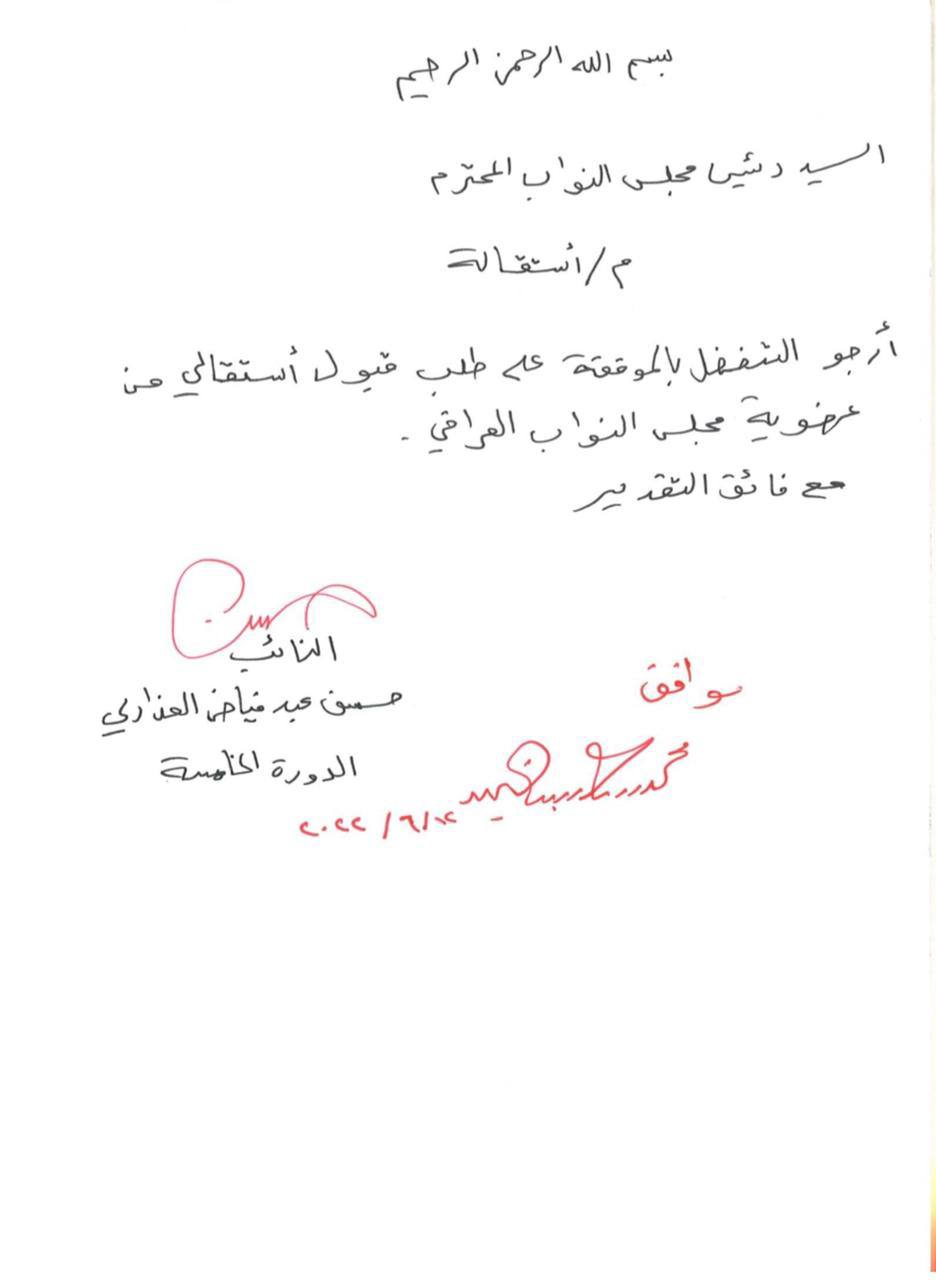 بسم الله الرحمن الرحيم
السيد رئيس مجلس النواب المحترم
م/أستقالة
أرجو التفضل بالموفقة على طلب قبول أستقالي من
عضوية مجلس النواب العراقي .
مع فائق التقدير
النائب
حسن عبد فياض العذاري
الدورة الخامسة
موافق
محمد
٢٠٢٢/٦/١٢